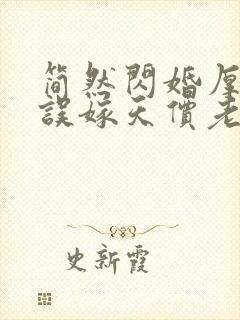 简然閃婚厚
誤嫁天價老
史新霞